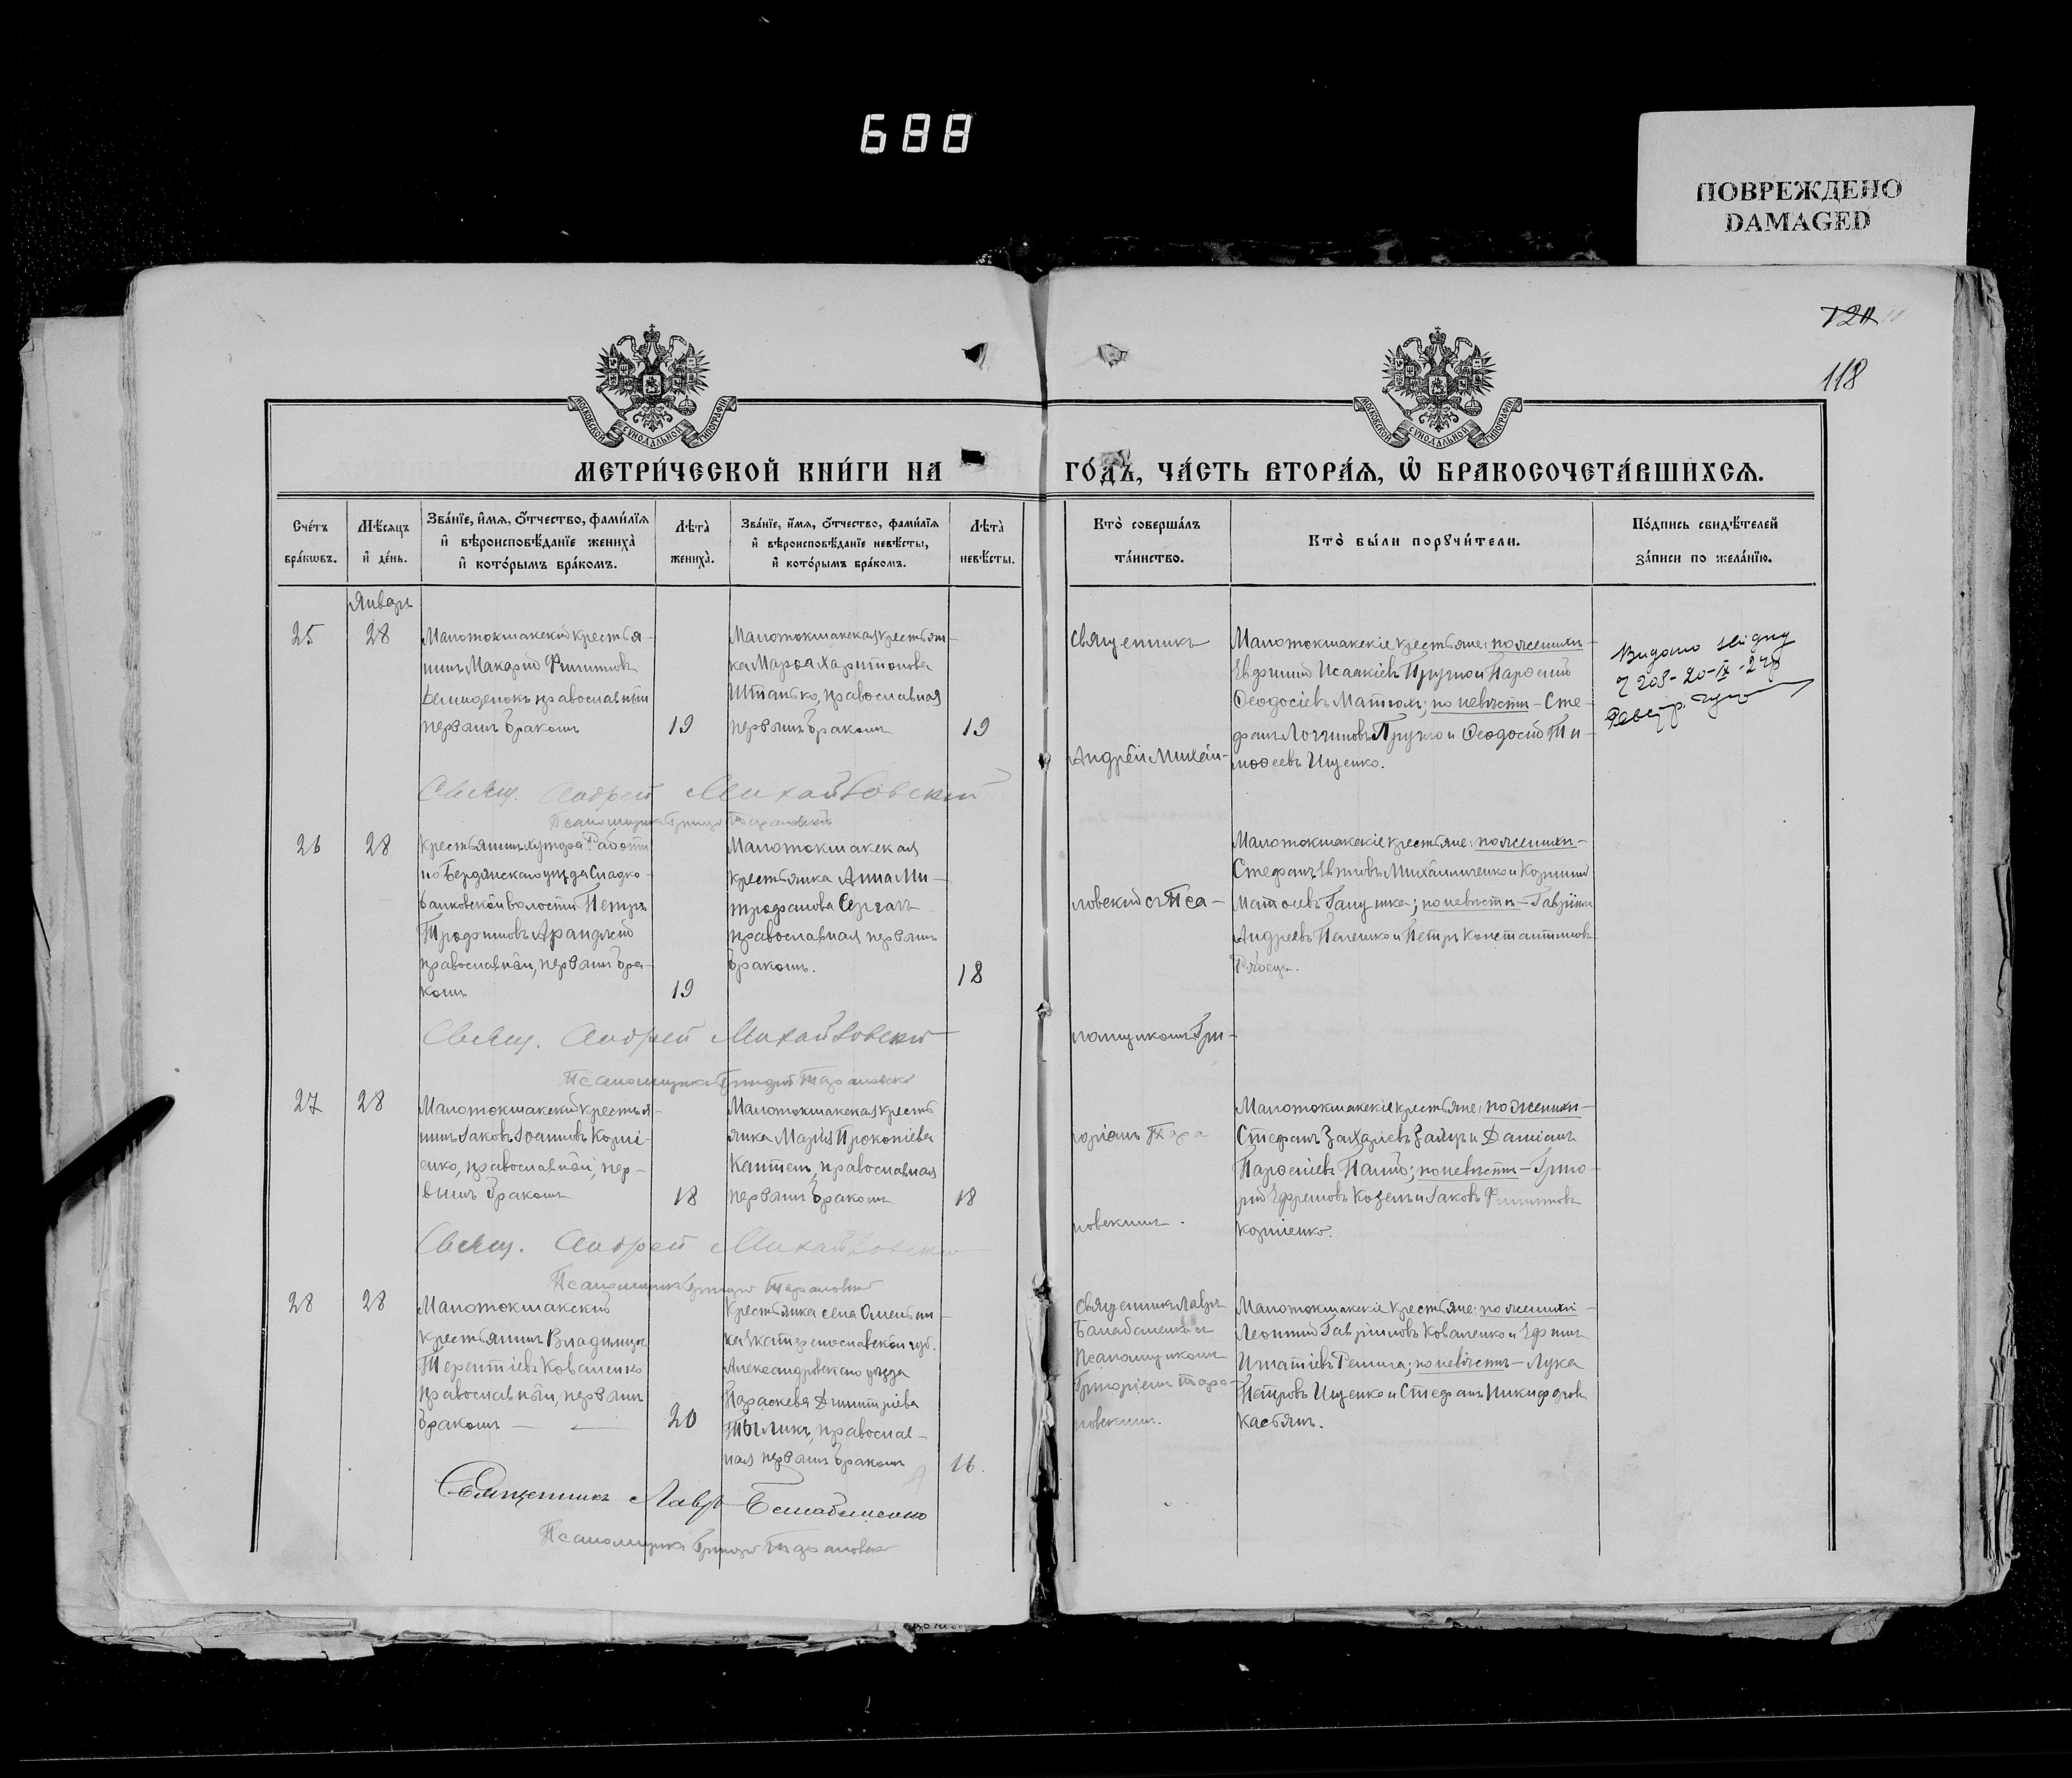 688
ПОВРЕЖДЕНО
DAMAGED
118
МОСКОВСКОЙ СѴНОДАЛЬНОЙ ТИПОГРАФІИ
МОСКОВСКОЙ СѴНОДАЛЬНОЙ ТИПОГРАФІИ
МЕТРИ́ЧЕСКОЙ КНИ́ГИ НА ГО́ДЪ, ЧА́СТЬ ВТОРА́Я, Ѡ҆ БРАКОСОЧЕТА́ВШИХСЯ.
Сче́тъ бра́кѡвъ.
Мѣ́сяцъ и҆ де́нь.
Зва́нїе, и҆́мя, о҆́тчество, фами́лїя и҆ вѣроисповѣ́данїе жениха̀ и҆ кото́рымъ бра́комъ.
Лѣта̀ жениха̀.
Зва́нїе, и҆́мя, о҆́тчество, фами́лїя и҆ вѣроисповѣ́данїе невѣ́сты, и҆ кото́рымъ бра́комъ.
Лѣта̀ невѣ́сты.
Кто̀ соверша́лъ та́инство.
Кто̀ бы́ли порꙋчи́тели.
По́дпись свидѣ́телей за́писи по жела́нїю.
Январь
25
28
Малотокмакскій крестья-
нинъ Макарій Филиповъ
Демиденокъ православный
первымъ бракомъ
19
Малотокмакская крестьян-
ка Марѳа Харитонова
Штанько, православная
первымъ бракомъ
19
Священникъ
Андрей Михай-
Малотокмакскіе крестьяне: по женихѣ-
Евфимій Исаакіевъ Пругло и Парѳеній
Ѳеодосіевъ Матюхъ; по невѣстѣ - Сте-
фанъ Логгиновъ Пругло и Ѳеодосій Ти-
моѳеевъ Ищенко.
Свящ. Андрей Михайловскій
Псаломщикъ Григорій Тарановскій
26
28
Крестьянинъ хутора
Бердянскаго уѣзда Сладко-
балковской волости Петръ
Трофимовъ
православный, первымъ бра-
комъ
19
Малотокмакская
крестьянка Анна Ми-
трофанова
православная первымъ
бракомъ.
18
ловскій съ Пса-
ломщикомъ Гри-
Малотокмакскіе крестьяне: по женихѣ-
Стефанъ Михайличенко и
Галушка; по невѣстѣ - Гавріилъ
Андреевъ и Петръ Константиновъ
Свящ. Андрей Михайловскій
Псаломщикъ Григорій Тарановскій
27
28
Малотокмакскій крестья-
нинъ Іаковъ Іоанновъ Корні-
енко, православный, пер-
вымъ бракомъ
18
Малотокмакская кресть
янка Марія Прокопіева
православная
первымъ бракомъ
18
горіемъ Тара
новскимъ.
Малотокмакскіе крестьяне: по женихѣ-
Стефанъ Захаріевъ Заяцъ и Даміанъ
по невѣстѣ - Григо-
рій Ефремовъ Козелъ и Іаковъ Филиповъ
Корніенко.
Свящ. Андрей Михайловскій
Псаломщикъ Григорій Тарановскій
28
28
Малотокмакскій
крестьянинъ Владиміръ
Терентіевъ Коваленко
православный, первымъ
бракомъ
20
Крестьянка села Омельни-
ка Екатеринославской губ.
Александровскаго уѣзда
Параскева Димитріева
православ-
ная первымъ бракомъ
16.
Священникъ Лавръ
Балабаненко съ
Псаломщикомъ
Григоріемъ Тара-
новскимъ.
Малотокмакскіе крестьяне: по женихѣ
Леонтій Гавріиловъ Коваленко и Ефимъ
Игнатіевъ Репига; по невѣстѣ - Лука
Петровъ Ищенко и Стефанъ Никифоровъ
Касьянъ.
Священникъ Лавръ Балабаненко
Псаломщикъ Григорій Тарановскій